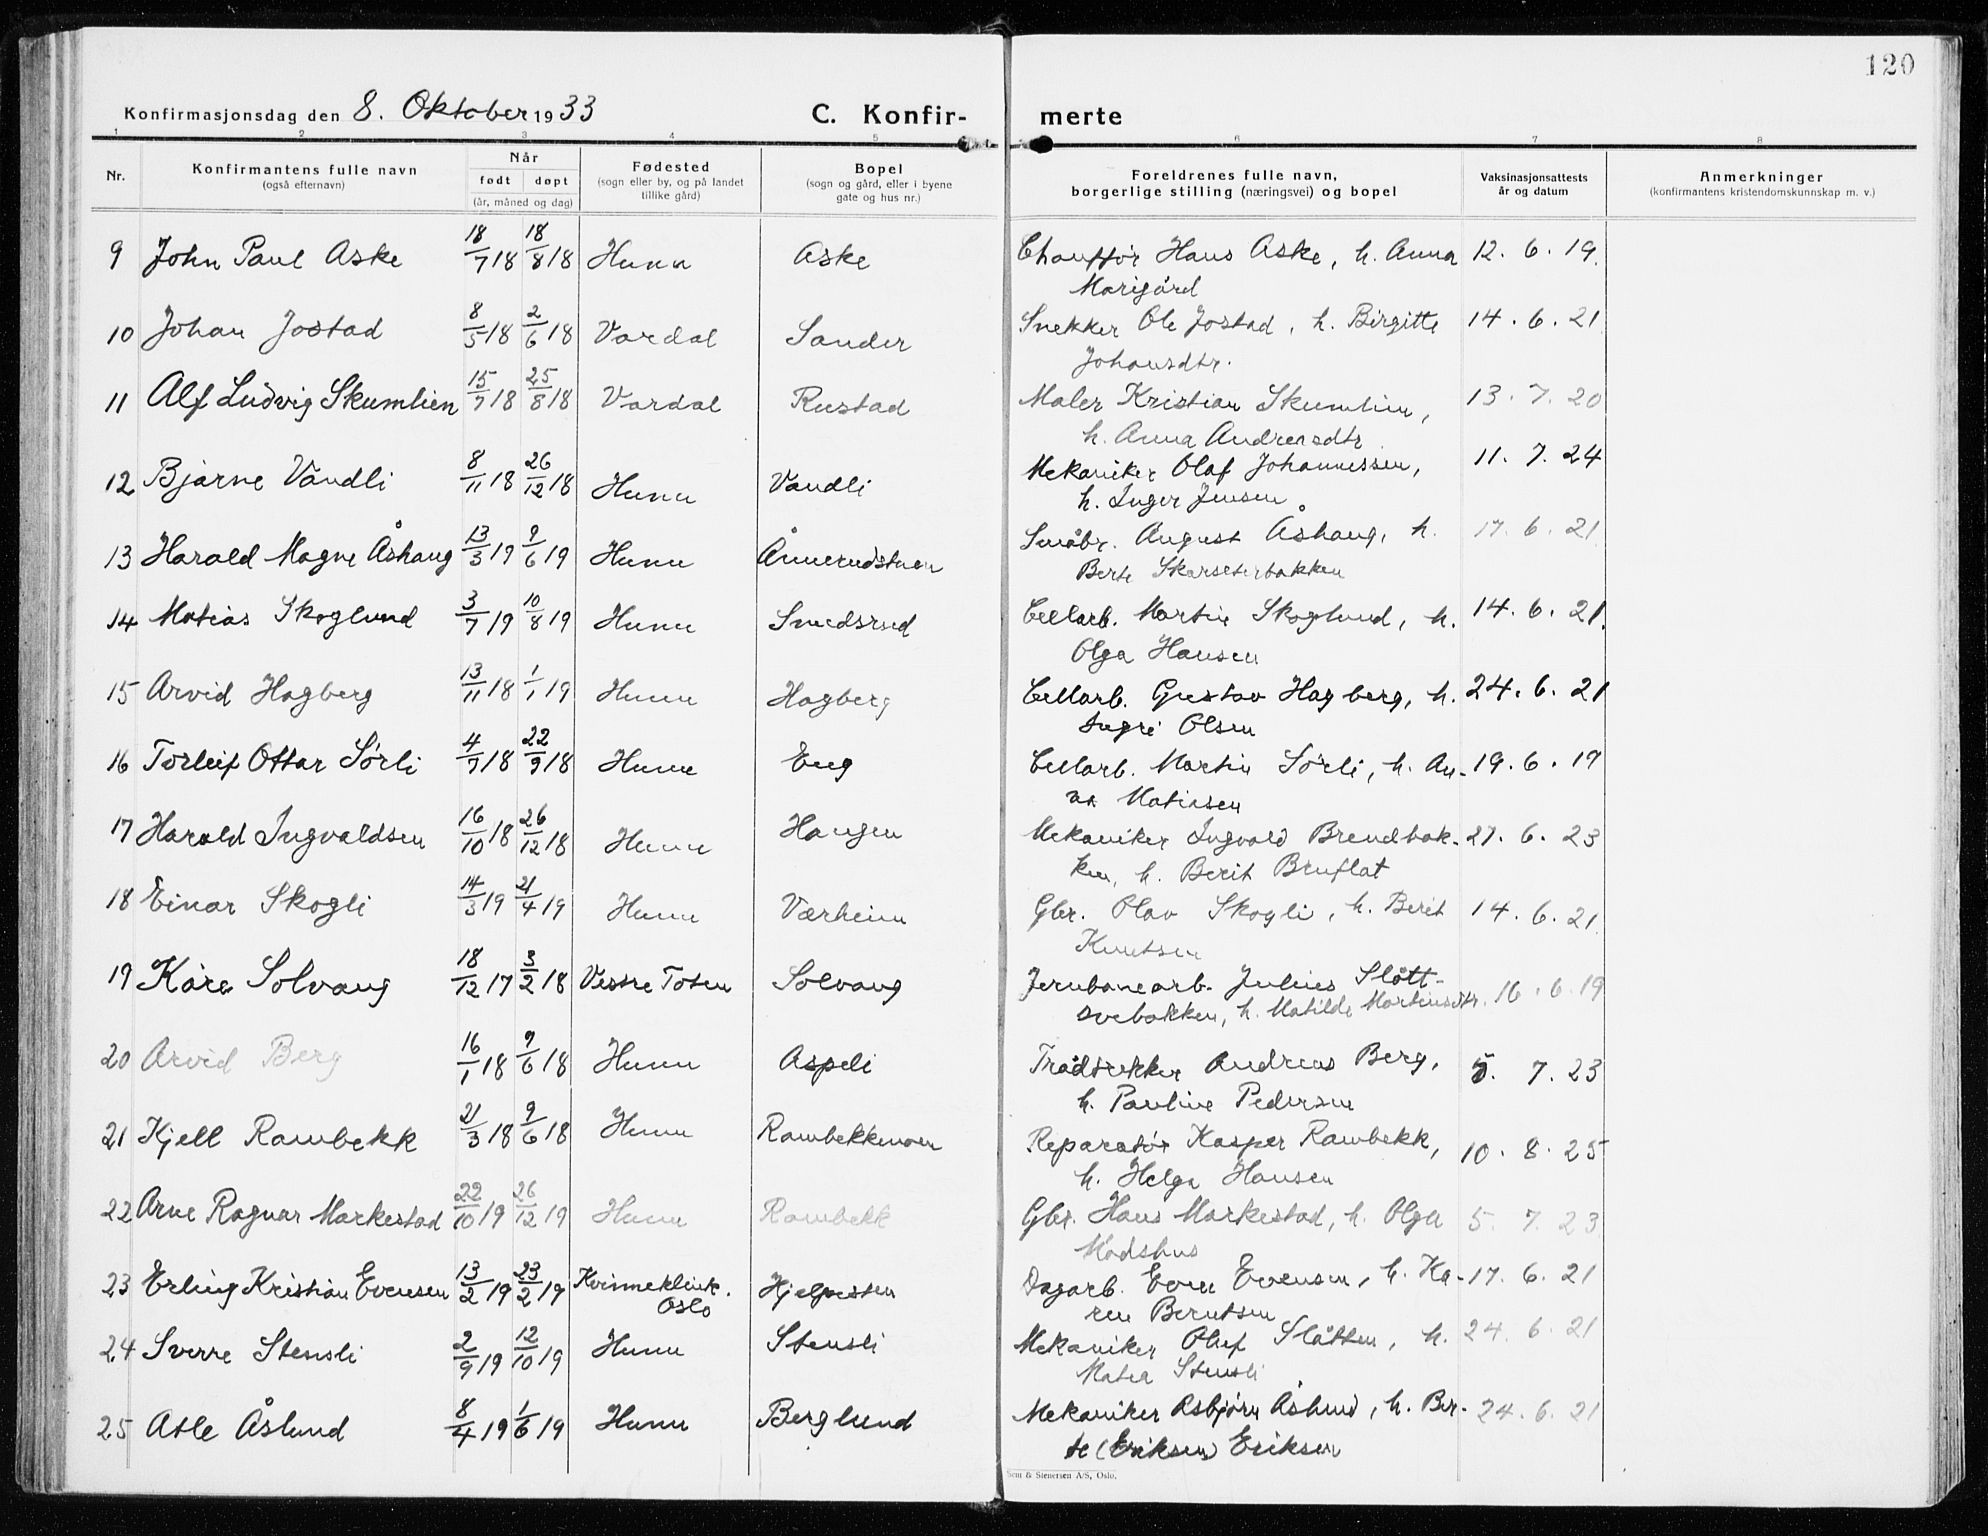 120
Konfirmasjonsdag den 8. Oktober 1933 C. Konfir- merte
1 2 3 4 5 6 7 8
Nr. Konfirmantens fulle navn (også efternavn) Når født døpt (år, måned og dag) Fødested (sogn eller by, og på landet tillike gård) Bopel (sogn og gård, eller i byene gate og hus nr.) Foreldrenes fulle navn, borgerlige stilling (næringsvei) og bopel Vaksinasjonsattests år og datum Anmerkninger (konfirmantens kristendomskunnskap m. v.)
9 John Paul Aske 18/7 18 18/8 18 Hunn Aske Chauffør Hans Aske, h. Anna 12. 6. 19.
Marigård
10 Johan Jostad 8/5 18 2/6 18 Vardal Sander Snekker Ole Jostad, h. Birgitte 14. 6. 21
Johansdtr.
11 Alf Ludvig Skumlien 15/7 18 25/8 18 Vardal Rustad Maler Kristian Skumlien, 13. 7. 20
h. Anna Andreasdtr
12 Bjarne Vandli 8/11 18 26/12 18 Hunn Vandli Mekaniker Olaf Johannessen, 11. 7. 24
h. Inger Jensen
13 Harald Magne Åshaug 13/3 19 9/6 19 Hunn Ånnerudstuen Småbr. August Åshaug, h. 17. 6. 21
Berte Skarseterbakken
14 Matias Skoglund 3/7 19 10/8 19 Hunn Smedsrud Cellarb. Martin Skoglund, h. 14. 6. 21.
Olga Hansen
15 Arvid Hagberg 13/11 18 1/1 19 Hunn Hagberg Cellarb. Gustav Hagberg, h. 24. 6. 21
Ingri Olsen
16 Torleif Ottar Sørli 4/7 18 22/9 18 Hunn Eng Cellarb. Martin Sørli, h. An- 19. 6. 19
na Matiasen
17 Harald Ingvaldsen 16/10 18 26/12 18 Hunn Haugen Mekaniker Ingvald Brendbak- 27. 6. 23
ken, h. Berit Bruflat
18 Einar Skogli 14/3 19 21/4 19 Hunn Værheim Gbr. Olav Skogli, h. Berit 14. 6. 21
Knutsen
19 Kåre Solvang 18/12 17 3/2 18 Vestre Toten Solvang Jernbanearb. Julius Slått-
svebakken, h. Matilde Martinsdtr. 16. 6. 19
20 Arvid Berg 16/1 18 9/6 18 Hunn Aspeli Trådtrekker Andreas Berg, 5. 7. 23
h. Pauline Pedersen
21 Kjell Rambekk 21/3 18 9/6 18 Hunn Rambekkmoen Reparatør Kasper Rambekk, 10. 8. 25
h. Helga Hansen
22 Arne Ragnar Markestad 22/10 19 26/12 19 Hunn Rambekk Gbr. Hans Markestad, h. Olga 5. 7. 23
Madshus
23 Erling Kristian Evensen 13/2 19 23/2 19 Kvinneklinik. Oslo Hjelpesten Dagarb. Even Evensen, h. Ka- 17. 6. 21
ren Berntsen
24 Sverre Stensli 2/9 19 12/10 19 Hunn Stensli Mekaniker Oluf Slåtten, h. 24. 6. 21
Matea Stensli
25 Atle Åslund 8/4 19 1/6 19 Hunn Berglund Mekaniker Asbjørn Åslund, h. Ber- 24. 6. 21
te (Eriksen) Eriksen
Sem & Stenersen A/S, Oslo.